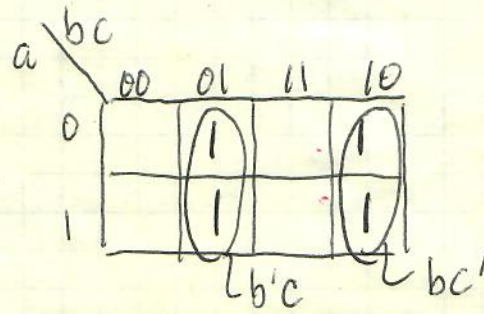 bc
a
00 01 11 10
0 1 1
1 1 1
b'c bc'